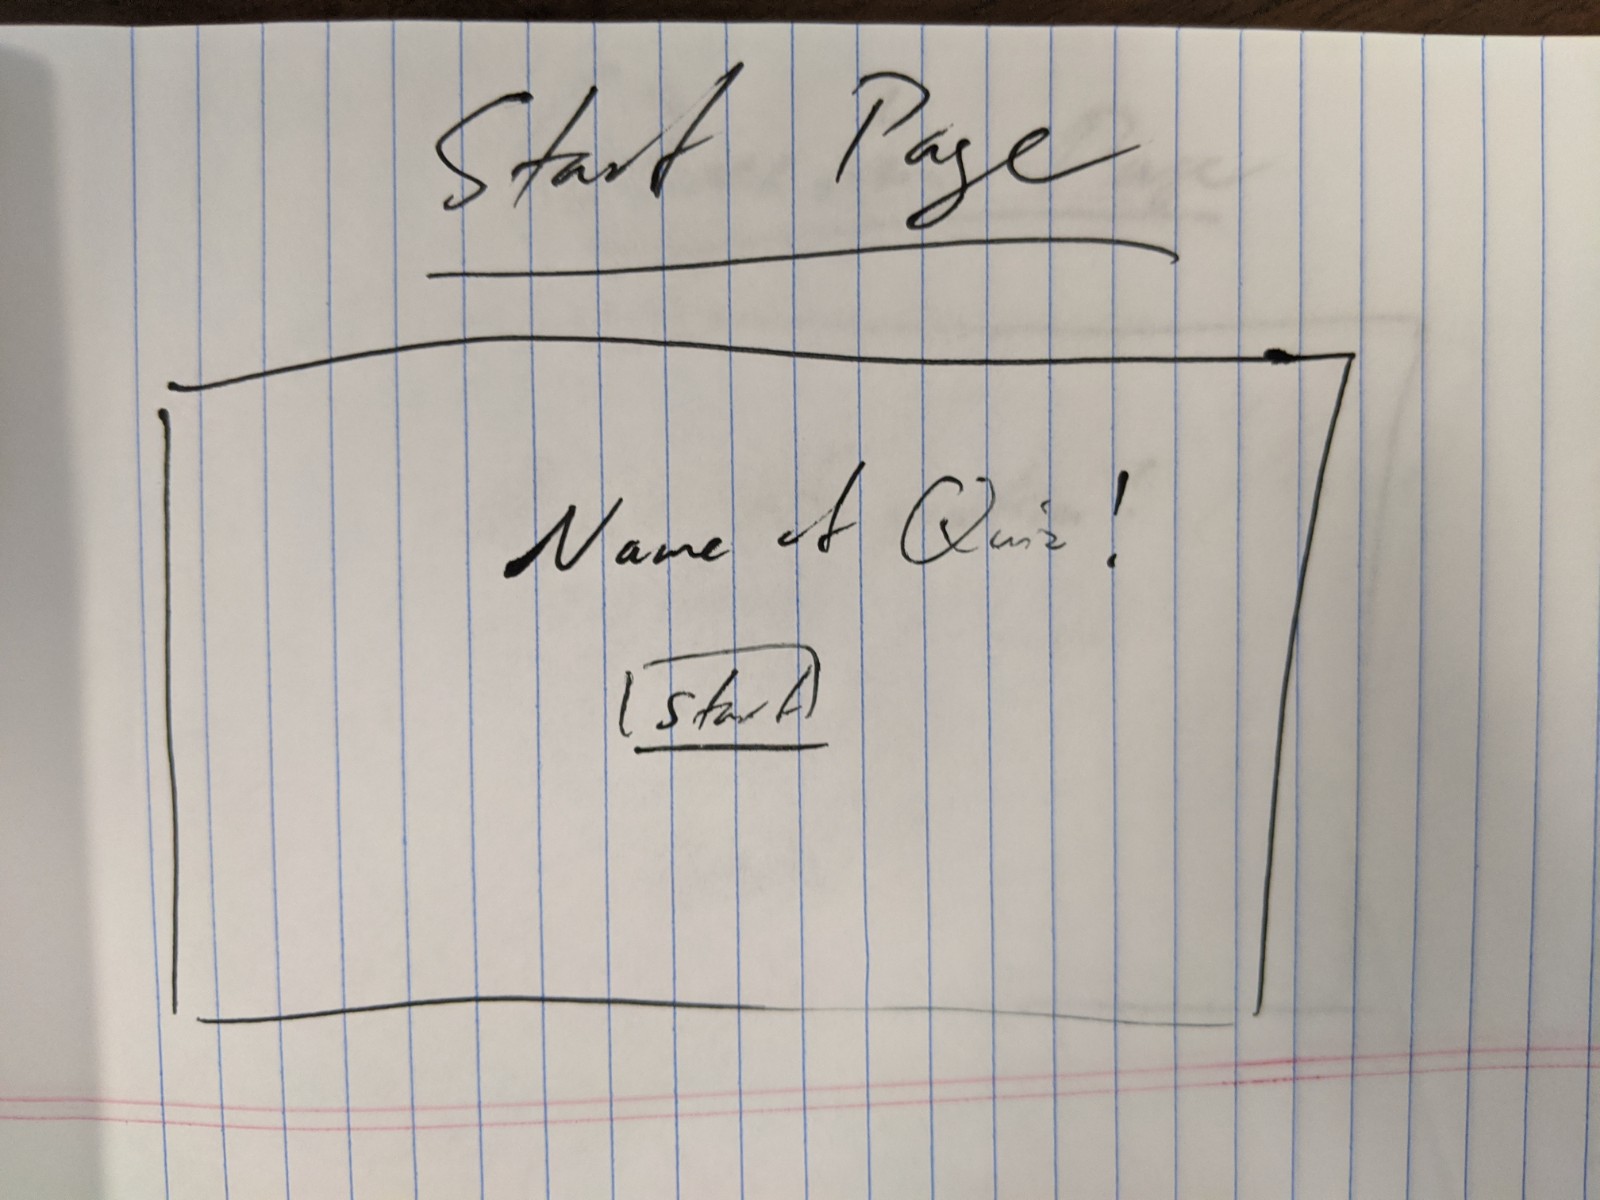 Start Page
Name of Quiz!
Start